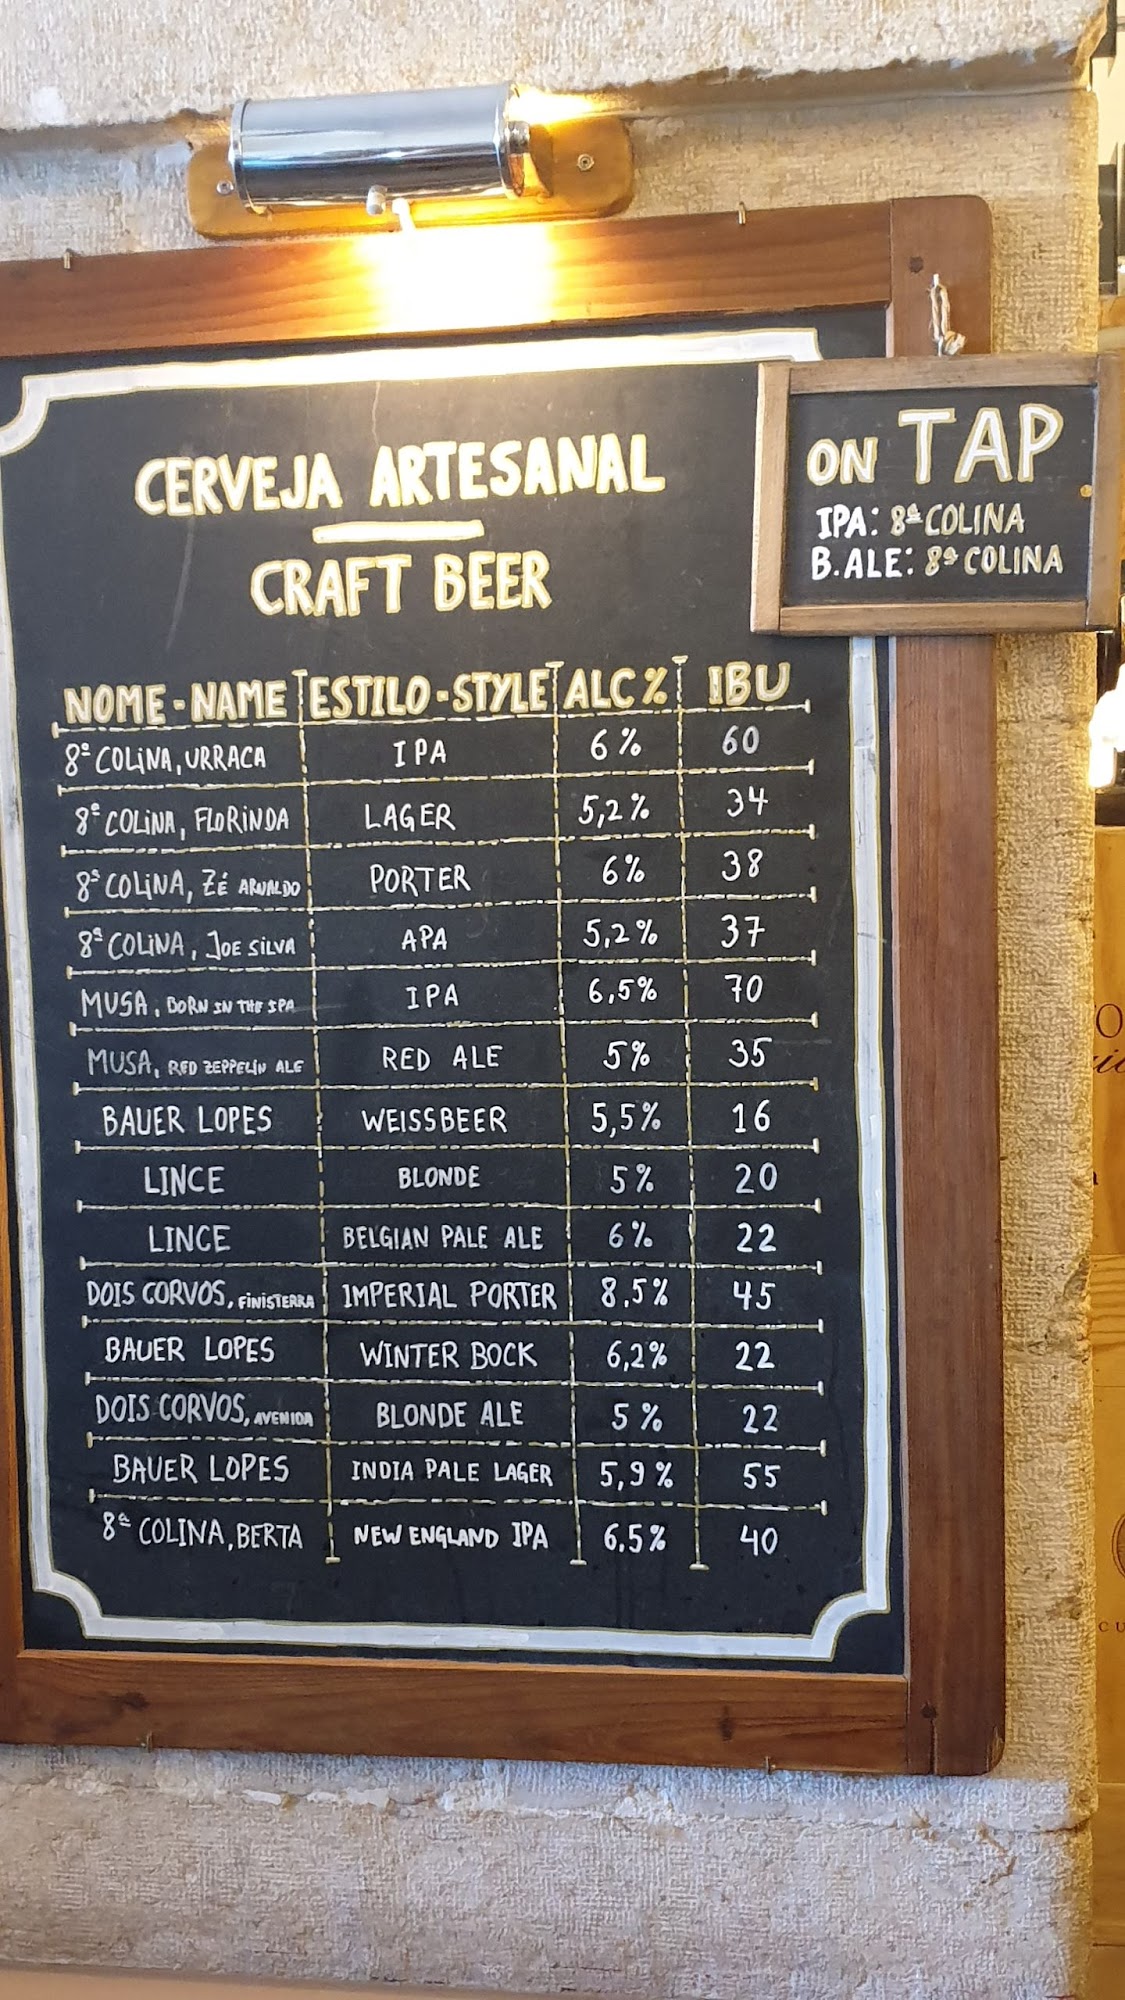 CERVEJA ARTESANAL
CRAFT BEER
ON TAP
IPA: 8ª COLINA
B.ALE: 8ª COLINA
NOME - NAME ESTILO - STYLE ALC % IBU
8ª COLINA, URRACA IPA 6% 60
8ª COLINA, FLORINDA LAGER 5,2% 34
8ª COLINA, ZÉ ARNALDO PORTER 6% 38
8ª COLINA, JOE SILVA APA 5,2% 37
MUSA, BORN IN THE IPA IPA 6,5% 70
MUSA, RED ZEPPELIN ALE RED ALE 5% 35
BAUER LOPES WEISSBEER 5,5% 16
LINCE BLONDE 5% 20
LINCE BELGIAN PALE ALE 6% 22
DOIS CORVOS, FINISTERRA IMPERIAL PORTER 8,5% 45
BAUER LOPES WINTER BOCK 6,2% 22
DOIS CORVOS, AVENIDA BLONDE ALE 5% 22
BAUER LOPES INDIA PALE LAGER 5,9% 55
8ª COLINA, BERTA NEW ENGLAND IPA 6.5% 40